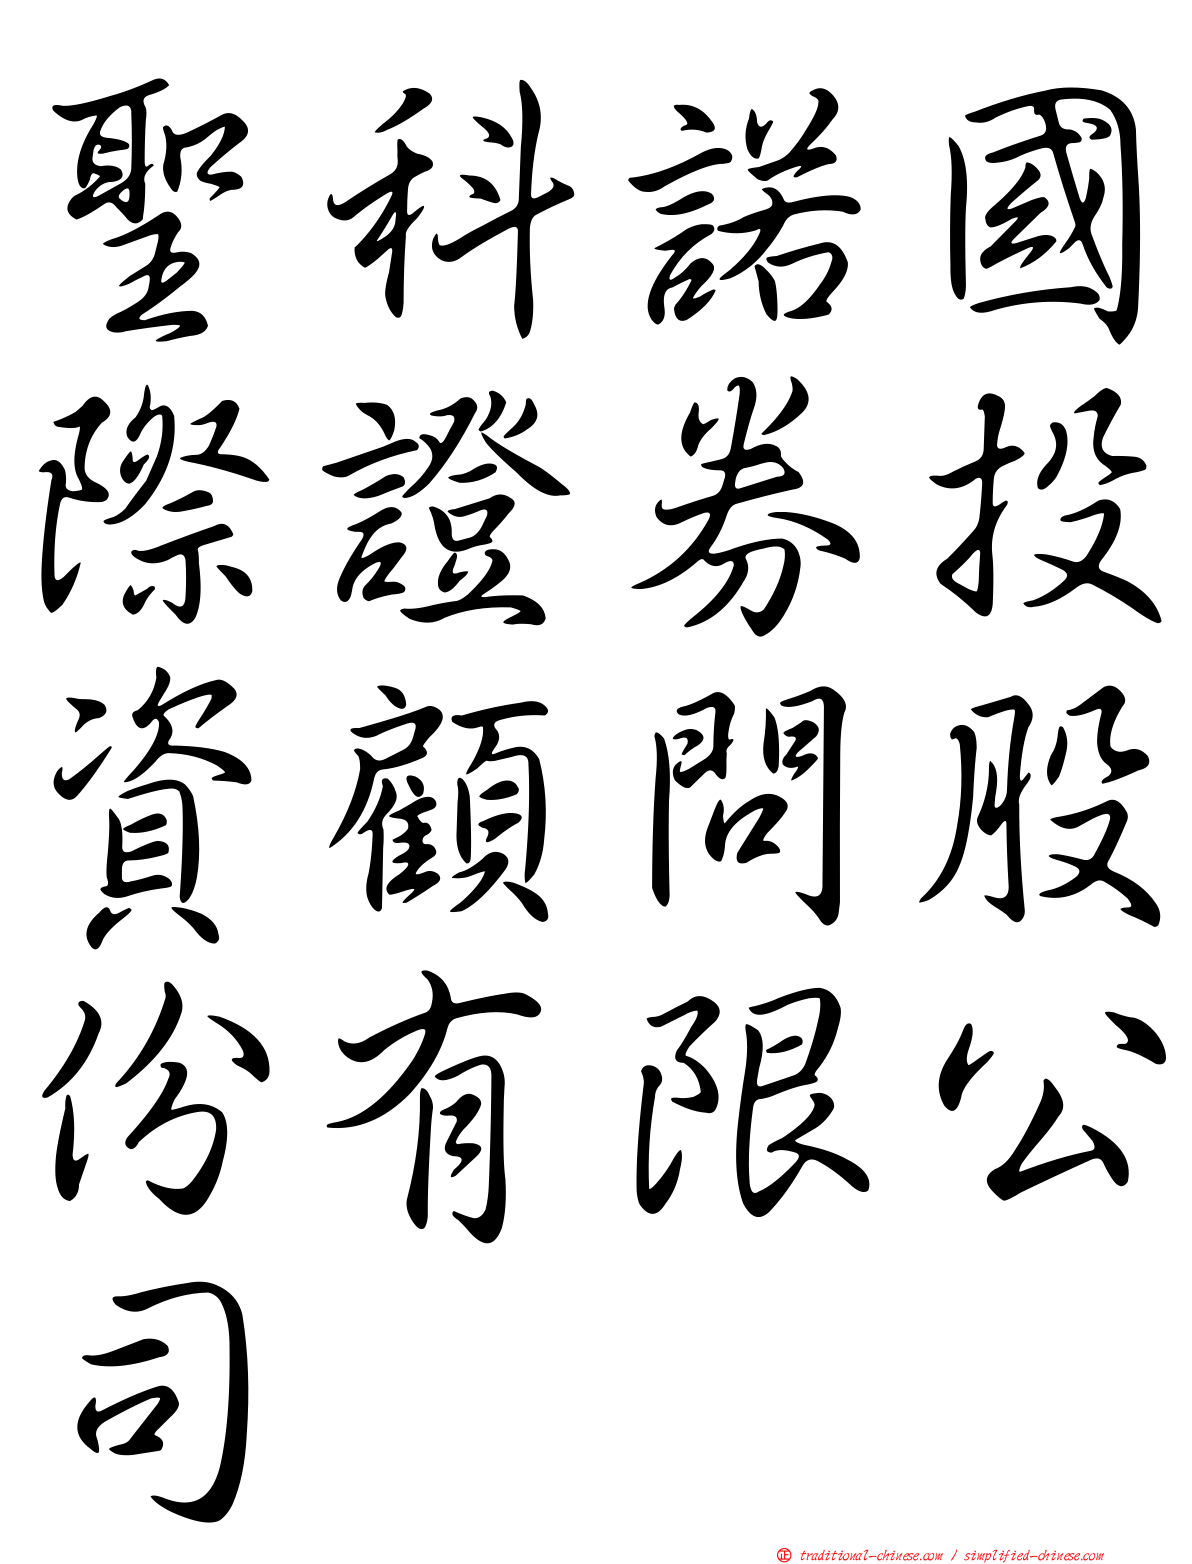 聖科諾國
際證券投
資顧問股
份有限公
司
正 traditional-chinese.com / simplified-chinese.com